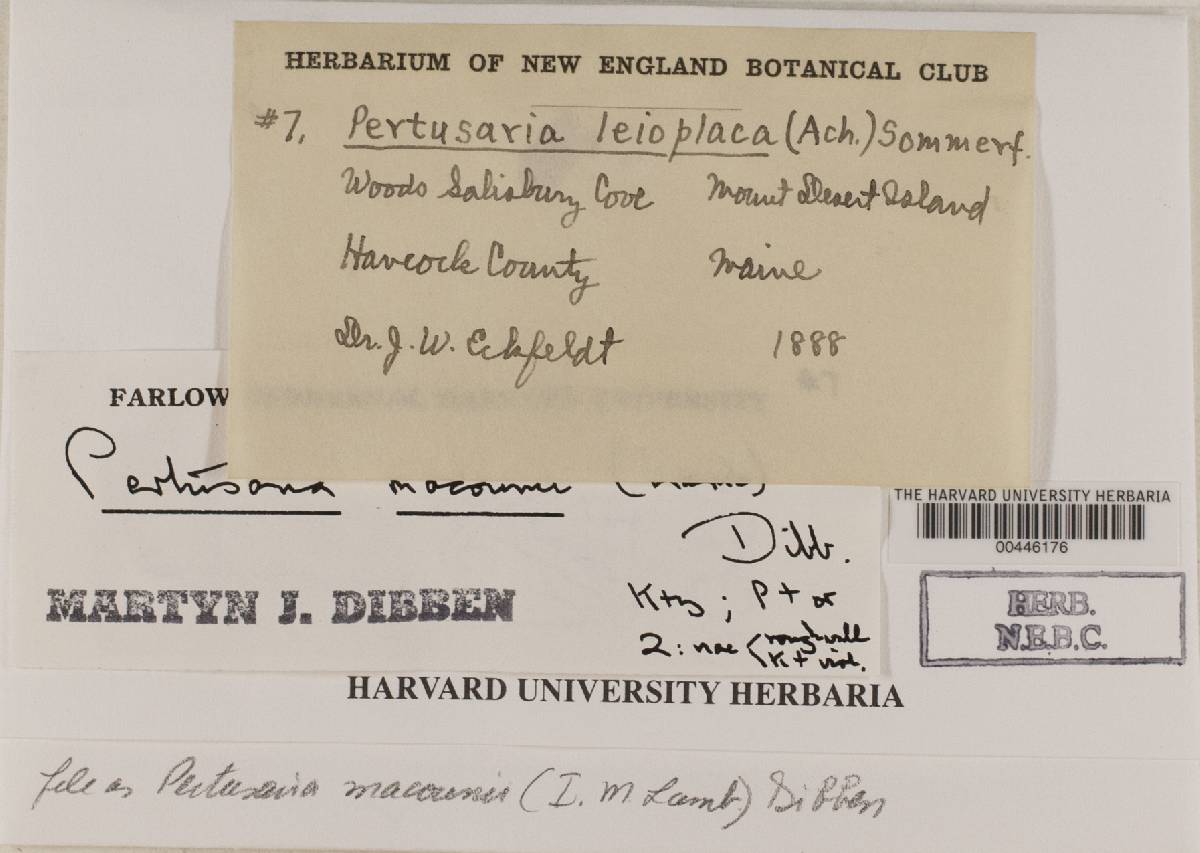 HERBARIUM OF NEW ENGLAND BOTANICAL CLUB
#7, Pertusaria leioplaca (Ach.) Sommerf.
Woods Salisbury Cove Mount Desert Island
Hancock County Maine
Dr. J. W. Eckfeldt 1888
#7
FARLOW
Pertusaria macounii (Lamb)
Dibb.
MARTYN J. DIBBEN
K+y ; P+ or
2: nae < rough wall
K+ viol.
THE HARVARD UNIVERSITY HERBARIA
00446176
HERB.
N.E.B.C.
HARVARD UNIVERSITY HERBARIA
file as Pertusaria macounii (I. M. Lamb) Dibben